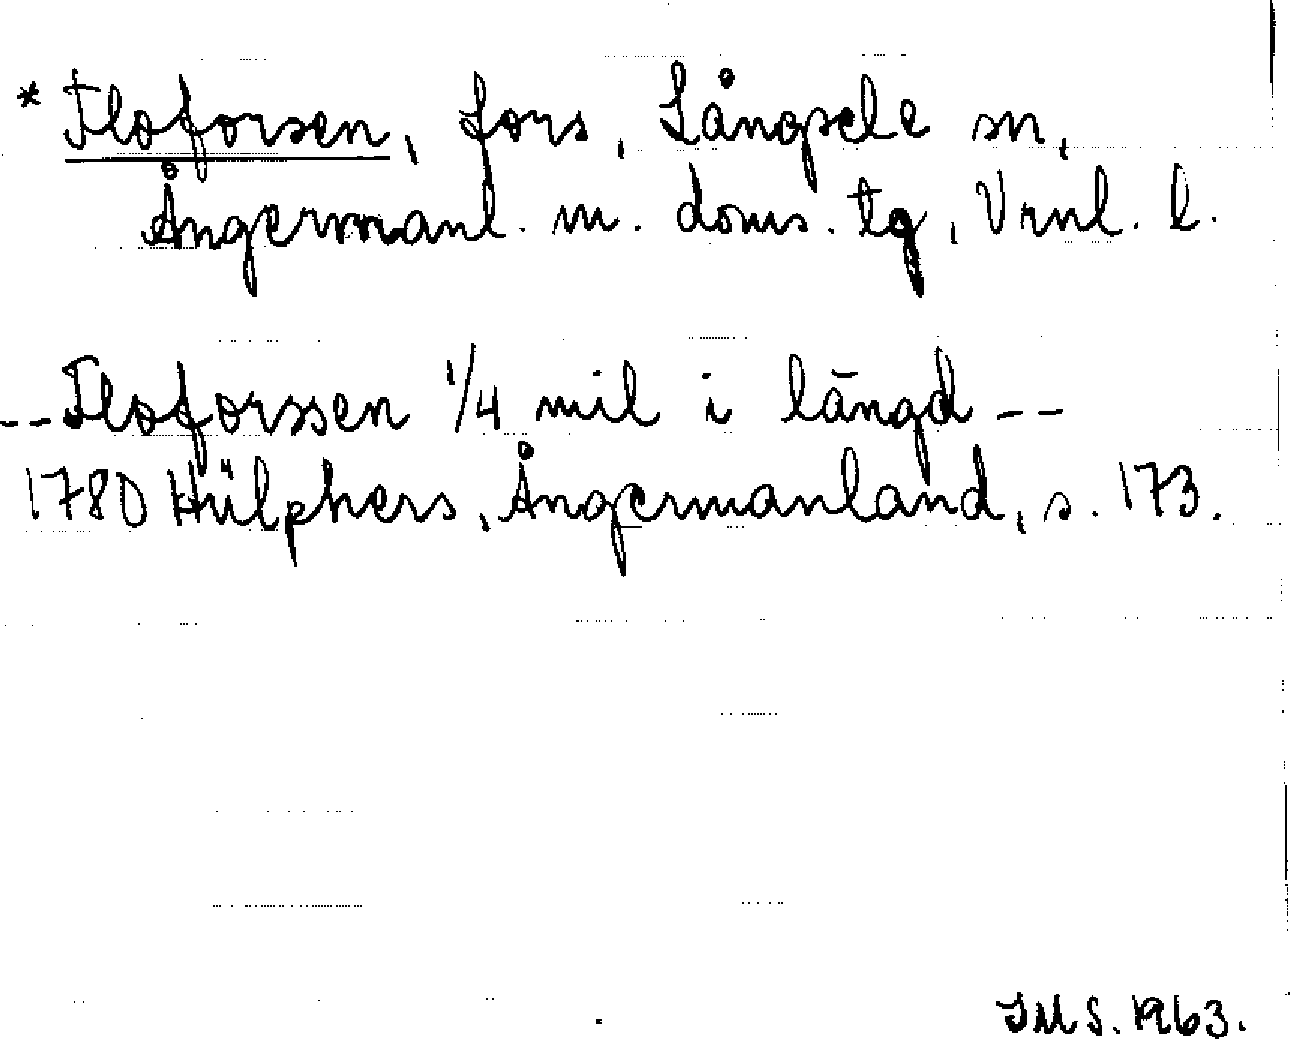 * Floforsen, fors, Långsele sn,
Ångermanl. m. doms. tg, Vrnl. l.
-- Floforssen 1/4 mil i längd --
1780 Hülphers, Ångermanland, s. 173.
IMS. 1963.